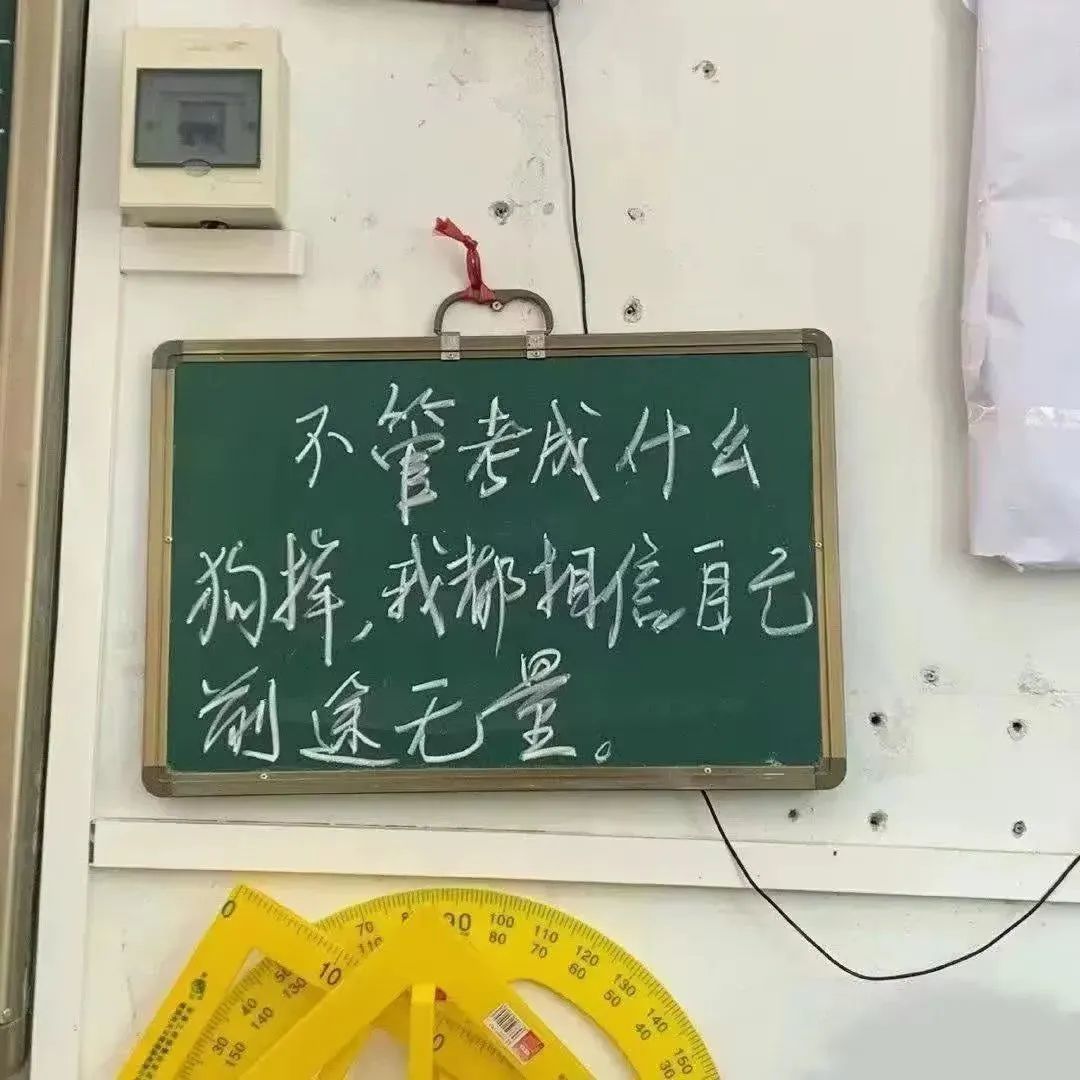 不管考成什么
狗样，我都相信自己
前途无量。
0
10
70
110
80
90
100
80
110
70
120
60
130
50
140
40
150
30
50
130
40
140
30
150
0